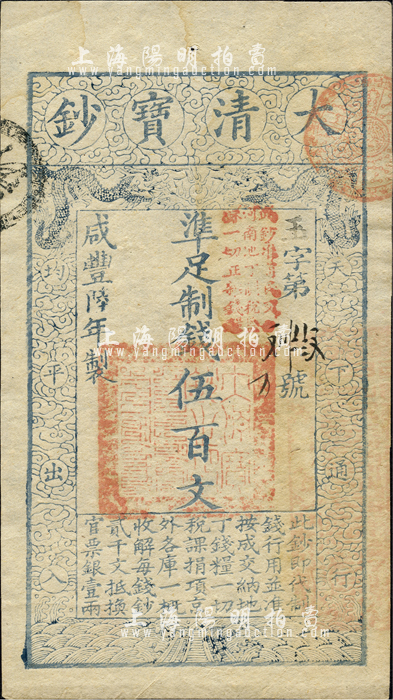 上海陽明拍賣
www.yangmingauction.com
大清寶鈔
天下通行
均平出入
字第
號
準足制錢伍百文
咸豐陸年製
此鈔即代制
錢行用並准
按成交納地
丁錢糧一切
稅課捐項京
外各庫一概
收解每錢鈔
貳千文抵換
官票銀壹兩
上海陽明拍賣
www.yangmingauction.com
上海陽明拍賣
www.yangmingauction.com